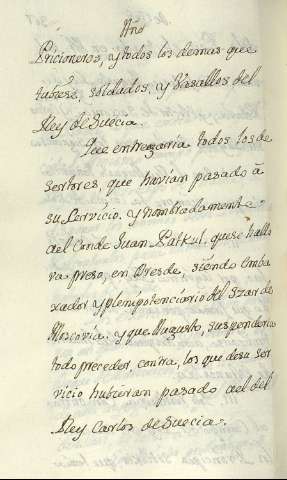 Año
Pricioneros, y todos los demas que
tubiese, soldados, y Vasallos del
Rey de Suecia.
Que entregaria todos los de
sertores, que havian pasado â
su Servicio. y nombradamente
ael Conde Juan Patkul. quese halla
va preso, en Dresde, siendo Emba
xador y plenipotenciario del Szar de
Moscovia. y que Augusto, suspenderia
todo proceder, contra, los que desu ser
vicio hubieran pasado ael del
Rey Carlos de Suecia.